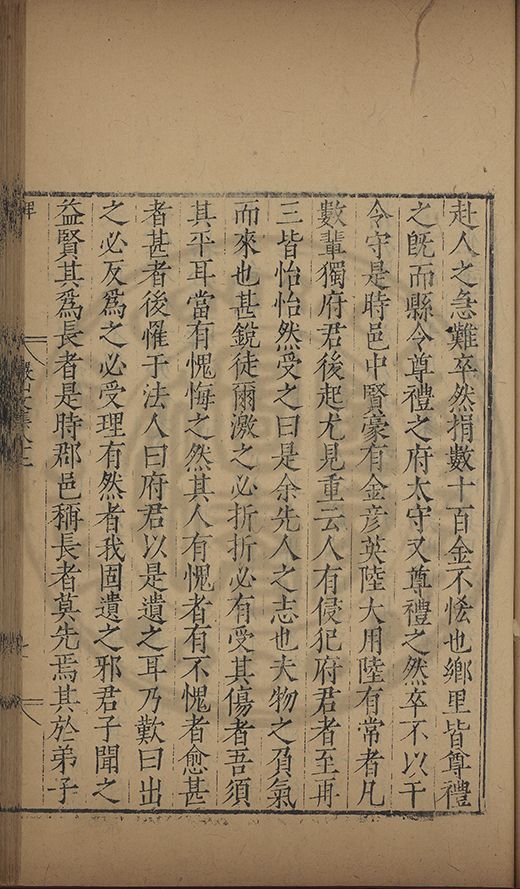 赴人之急難卒然捐數十百金不恡也鄉里皆尊禮
之旣而縣令尊禮之府太守又尊禮之然卒不以干
令守是時邑中賢豪有金彥英陸大用陸有常者凡
數輩獨府君後起尤見重云人有侵犯府君者至再
三皆怡怡然受之曰是余先人之志也夫物之負氣
而來也甚銳徒爾激之必折折必有受其傷者吾須
其平耳當有愧悔之然其人有愧者有不愧者愈甚
者甚者後懼于法人曰府君以是遺之耳乃歎曰出
之必反爲之必受理有然者我固遺之邪君子聞之
益賢其爲長者是時郡邑稱長者莫先焉其於弟子